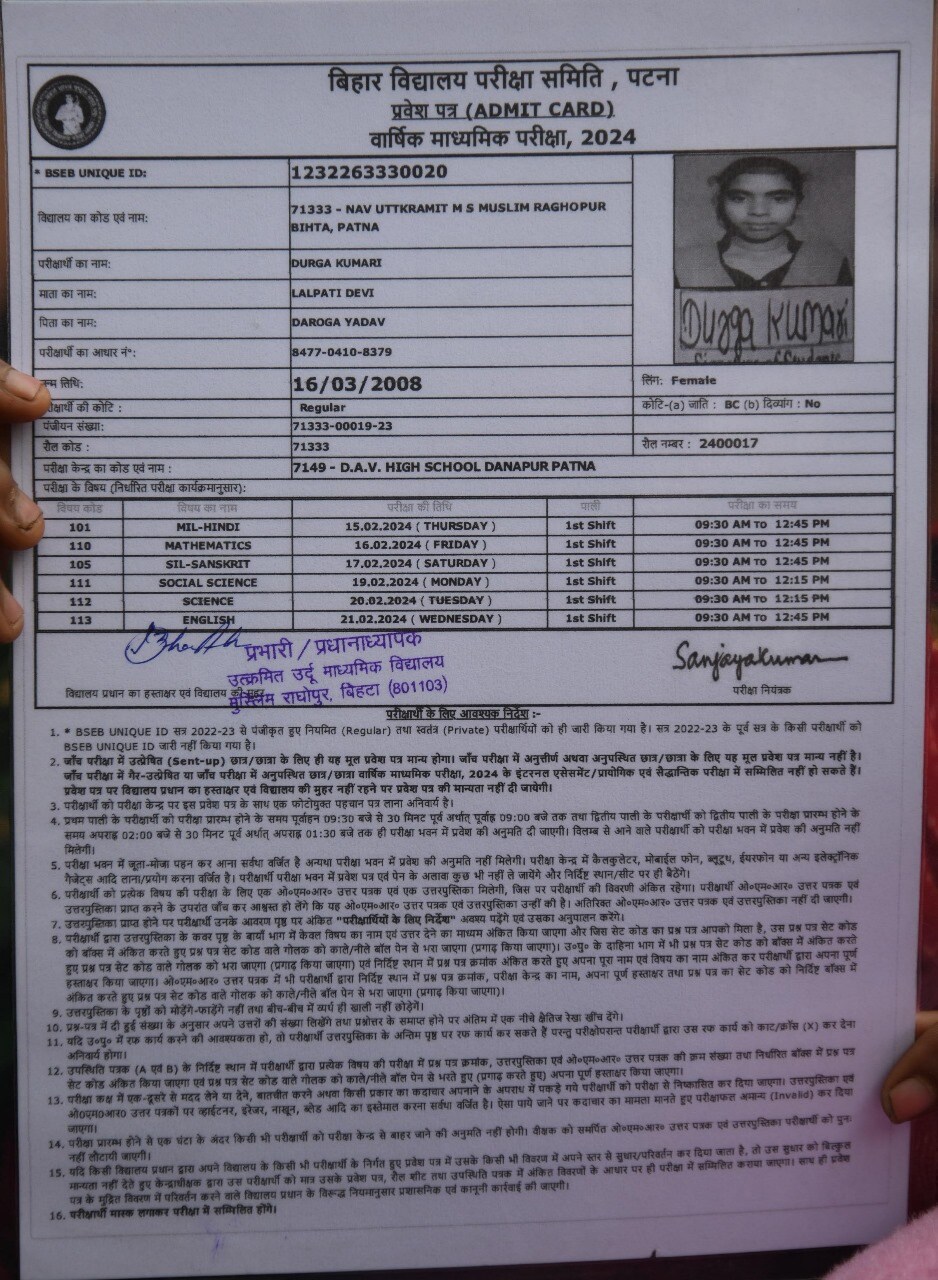 बिहार विद्यालय परीक्षा समिति , पटना
प्रवेश पत्र (ADMIT CARD)
वार्षिक माध्यमिक परीक्षा, 2024
* BSEB UNIQUE ID: 1232263330020
विद्यालय का कोड एवं नाम: 71333 - NAV UTTKRAMIT M S MUSLIM RAGHOPUR
BIHTA, PATNA
परीक्षार्थी का नाम: DURGA KUMARI
माता का नाम: LALPATI DEVI
पिता का नाम: DAROGA YADAV
Durga Kumari
परीक्षार्थी का आधार नं॰: 8477-0410-8379
तिथि: 16/03/2008 लिंग: Female
की कोटि : Regular कोटि-(a) जाति : BC (b) दिव्यांग : No
पंजीयन संख्या: 71333-00019-23
रौल कोड : 71333 रौल नम्बर : 2400017
परीक्षा केन्द्र का कोड एवं नाम : 7149 - D.A.V. HIGH SCHOOL DANAPUR PATNA
परीक्षा के विषय (निर्धारित परीक्षा कार्यक्रमानुसार):
विषय कोड विषय का नाम परीक्षा की तिथि पाली परीक्षा का समय
101 MIL-HINDI 15.02.2024 ( THURSDAY ) 1st Shift 09:30 AM TO 12:45 PM
110 MATHEMATICS 16.02.2024 ( FRIDAY ) 1st Shift 09:30 AM TO 12:45 PM
105 SIL-SANSKRIT 17.02.2024 ( SATURDAY ) 1st Shift 09:30 AM TO 12:45 PM
111 SOCIAL SCIENCE 19.02.2024 ( MONDAY ) 1st Shift 09:30 AM TO 12:15 PM
112 SCIENCE 20.02.2024 ( TUESDAY ) 1st Shift 09:30 AM TO 12:15 PM
113 ENGLISH 21.02.2024 ( WEDNESDAY ) 1st Shift 09:30 AM TO 12:45 PM
प्रभारी / प्रधानाध्यापक
उत्क्रमित उर्दू माध्यमिक विद्यालय
मुस्लिम राघोपुर, बिहटा (801103)
Sanjayakumar
विद्यालय प्रधान का हस्ताक्षर एवं विद्यालय की मुहर परीक्षा नियंत्रक
परीक्षार्थी के लिए आवश्यक निर्देश :-
1. * BSEB UNIQUE ID सत्र 2022-23 से पंजीकृत हुए नियमित (Regular) तथा स्वतंत्र (Private) परीक्षार्थियों को ही जारी किया गया है। सत्र 2022-23 के पूर्व सत्र के किसी परीक्षार्थी को
BSEB UNIQUE ID जारी नहीं किया गया है।
2. जाँच परीक्षा में उत्प्रेषित (Sent-up) छात्र/छात्रा के लिए ही यह मूल प्रवेश पत्र मान्य होगा। जाँच परीक्षा में अनुत्तीर्ण अथवा अनुपस्थित छात्र/छात्रा के लिए यह मूल प्रवेश पत्र मान्य नहीं है।
जाँच परीक्षा में गैर-उत्प्रेषित या जाँच परीक्षा में अनुपस्थित छात्र/छात्रा वार्षिक माध्यमिक परीक्षा, 2024 के इंटरनल एसेसमेंट/प्रायोगिक एवं सैद्धान्तिक परीक्षा में सम्मिलित नहीं हो सकते हैं।
प्रवेश पत्र पर विद्यालय प्रधान का हस्ताक्षर एवं विद्यालय की मुहर नहीं रहने पर प्रवेश पत्र की मान्यता नहीं दी जायेगी।
3. परीक्षार्थी को परीक्षा केन्द्र पर इस प्रवेश पत्र के साथ एक फोटोयुक्त पहचान पत्र लाना अनिवार्य है।
4. प्रथम पाली के परीक्षार्थी को परीक्षा प्रारम्भ होने के समय पूर्वाह्न 09:30 बजे से 30 मिनट पूर्व अर्थात् पूर्वाह्न 09:00 बजे तक तथा द्वितीय पाली के परीक्षार्थी को द्वितीय पाली के परीक्षा प्रारम्भ होने के
समय अपराह्न 02:00 बजे से 30 मिनट पूर्व अर्थात् अपराह्न 01:30 बजे तक ही परीक्षा भवन में प्रवेश की अनुमति दी जाएगी। विलम्ब से आने वाले परीक्षार्थी को परीक्षा भवन में प्रवेश की अनुमति नहीं
मिलेगी।
5. परीक्षा भवन में जूता-मोजा पहन कर आना सर्वथा वर्जित है अन्यथा परीक्षा भवन में प्रवेश की अनुमति नहीं मिलेगी। परीक्षा केन्द्र में कैलकुलेटर, मोबाईल फोन, ब्लूटूथ, ईयरफोन या अन्य इलेक्ट्रॉनिक
गैजेट्स आदि लाना/प्रयोग करना वर्जित है। परीक्षार्थी परीक्षा भवन में प्रवेश पत्र एवं पेन के अलावा कुछ भी नहीं ले जायेंगे और निर्दिष्ट स्थान/सीट पर ही बैठेंगे।
6. परीक्षार्थी को प्रत्येक विषय की परीक्षा के लिए एक ओ॰एम॰आर॰ उत्तर पत्रक एवं एक उत्तरपुस्तिका मिलेगी, जिस पर परीक्षार्थी की विवरणी अंकित रहेगा। परीक्षार्थी ओ॰एम॰आर॰ उत्तर पत्रक एवं
उत्तरपुस्तिका प्राप्त करने के उपरांत जाँच कर आश्वस्त हो लेंगे कि यह ओ॰एम॰आर॰ उत्तर पत्रक एवं उत्तरपुस्तिका उन्हीं की है। अतिरिक्त ओ॰एम॰आर॰ उत्तर पत्रक एवं उत्तरपुस्तिका नहीं दी जाएगी।
7. उत्तरपुस्तिका प्राप्त होने पर परीक्षार्थी उनके आवरण पृष्ठ पर अंकित "परीक्षार्थियों के लिए निर्देश" अवश्य पढ़ेंगे एवं उसका अनुपालन करेंगे।
8. परीक्षार्थी द्वारा उत्तरपुस्तिका के कवर पृष्ठ के बायाँ भाग में केवल विषय का नाम एवं उत्तर देने का माध्यम अंकित किया जाएगा और जिस सेट कोड का प्रश्न पत्र आपको मिला है, उस प्रश्न पत्र सेट कोड
को बॉक्स में अंकित करते हुए प्रश्न पत्र सेट कोड वाले गोलक को काले/नीले बॉल पेन से भरा जाएगा (प्रगाढ़ किया जाएगा)। उ॰पु॰ के दाहिना भाग में भी प्रश्न पत्र सेट कोड को बॉक्स में अंकित करते
हुए प्रश्न पत्र सेट कोड वाले गोलक को भरा जाएगा (प्रगाढ़ किया जाएगा) एवं निर्दिष्ट स्थान में प्रश्न पत्र क्रमांक अंकित करते हुए अपना पूरा नाम एवं विषय का नाम अंकित कर परीक्षार्थी द्वारा अपना पूर्ण
हस्ताक्षर किया जाएगा। ओ॰एम॰आर॰ उत्तर पत्रक में भी परीक्षार्थी द्वारा निर्दिष्ट स्थान में प्रश्न पत्र क्रमांक, परीक्षा केन्द्र का नाम, अपना पूर्ण हस्ताक्षर तथा प्रश्न पत्र का सेट कोड को निर्दिष्ट बॉक्स में
अंकित करते हुए प्रश्न पत्र सेट कोड वाले गोलक को काले/नीले बॉल पेन से भरा जाएगा (प्रगाढ़ किया जाएगा)।
9. उत्तरपुस्तिका के पृष्ठों को मोड़ेंगे-फाड़ेंगे नहीं तथा बीच-बीच में व्यर्थ ही खाली नहीं छोड़ेगें।
10. प्रश्न-पत्र में दी हुई संख्या के अनुसार अपने उत्तरों की संख्या लिखेंगे तथा प्रश्नोत्तर के समाप्त होने पर अंतिम में एक नीचे क्षैतिज रेखा खींच देंगे।
11. यदि उ॰पु॰ में रफ कार्य करने की आवश्यकता हो, तो परीक्षार्थी उत्तरपुस्तिका के अन्तिम पृष्ठ पर रफ कार्य कर सकते हैं परन्तु परीक्षोपरान्त परीक्षार्थी द्वारा उस रफ कार्य को काट/क्रॉस (X) कर देना
अनिवार्य होगा।
12. उपस्थिति पत्रक (A एवं B) के निर्दिष्ट स्थान में परीक्षार्थी द्वारा प्रत्येक विषय की परीक्षा में प्रश्न पत्र क्रमांक, उत्तरपुस्तिका एवं ओ॰एम॰आर॰ उत्तर पत्रक की क्रम संख्या तथा निर्धारित बॉक्स में प्रश्न पत्र
सेट कोड अंकित किया जाएगा एवं प्रश्न पत्र सेट कोड वाले गोलक को काले/नीले बॉल पेन से भरते हुए (प्रगाढ़ करते हुए) अपना पूर्ण हस्ताक्षर किया जाएगा।
13. परीक्षा कक्ष में एक-दूसरे से मदद लेना या देने, बातचीत करने अथवा किसी प्रकार का कदाचार अपनाने के अपराध में पकड़े गये परीक्षार्थी को परीक्षा से निष्कासित कर दिया जाएगा। उत्तरपुस्तिका एवं
ओ॰एम॰आर॰ उत्तर पत्रकों पर व्हाईटनर, इरेजर, नाखून, ब्लेड आदि का इस्तेमाल करना सर्वथा वर्जित है। ऐसा पाये जाने पर कदाचार का मामला मानते हुए परीक्षाफल अमान्य (Invalid) कर दिया
जाएगा।
14. परीक्षा प्रारम्भ होने से एक घंटा के अंदर किसी भी परीक्षार्थी को परीक्षा केन्द्र से बाहर जाने की अनुमति नहीं होगी। वीक्षक को समर्पित ओ॰एम॰आर॰ उत्तर पत्रक एवं उत्तरपुस्तिका परीक्षार्थी को पुनः
नहीं लौटायी जाएगी।
15. यदि किसी विद्यालय प्रधान द्वारा अपने विद्यालय के किसी भी परीक्षार्थी के निर्गत हुए प्रवेश पत्र में उसके किसी भी विवरण में अपने स्तर से सुधार/परिवर्तन कर दिया जाता है, तो उस सुधार को बिल्कुल
मान्यता नहीं देते हुए केन्द्राधीक्षक द्वारा उस परीक्षार्थी को मात्र उसके प्रवेश पत्र, रौल शीट तथा उपस्थिति पत्रक में अंकित विवरणों के आधार पर ही परीक्षा में सम्मिलित कराया जाएगा। साथ ही प्रवेश
पत्र के मुद्रित विवरण में परिवर्तन करने वाले विद्यालय प्रधान के विरूद्ध नियमानुसार प्रशासनिक एवं कानूनी कार्रवाई की जाएगी।
16. परीक्षार्थी मास्क लगाकर परीक्षा में सम्मिलित होंगे।